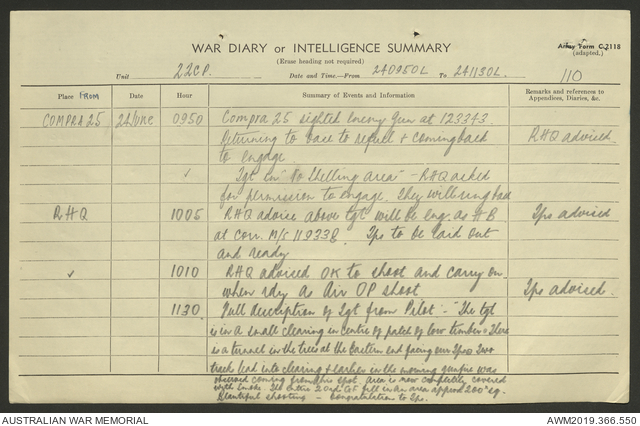 WAR DIARY or INTELLIGENCE SUMMARY
Army Form C.2118
(adapted.)
(Erase heading not required)
Unit 22CP. Date and Time—From 240950L To 241130L. 110
Place FROM Date Hour Summary of Events and Information Remarks and references to Appendices, Diaries, &c.
COMPRA 25 24 June 0950 Compra 25 sighted enemy gun at 123343.
Returning to base to refuel & coming back RHQ advised
to engage
✓ Tgt in "No Shelling area" - RHQ asked
for permission to engage. They will ring back
RHQ 1005 RHQ advice above tgt will be eng. as HB Tps advised
at corr. M/S 119338. Tps to be laid out
and ready
✓ 1010 RHQ advised OK to shoot and carry on
when rdy as Air OP shoot Tps advised.
1130 Full description of Tgt from Pilot :- "The tgt
is in a small clearing in centre of patch of low timber. There
is a tunnel in the trees at the Eastern end facing our Tps. Two
tracks lead into clearing & earlier in the morning gunfire was
observed coming from this spot. Area is now completely covered
with smoke. The entire 20 rds fell in an area approx 200x sq.
Beautiful shooting - Congratulations to Tps.
AUSTRALIAN WAR MEMORIAL
AWM2019.366.550